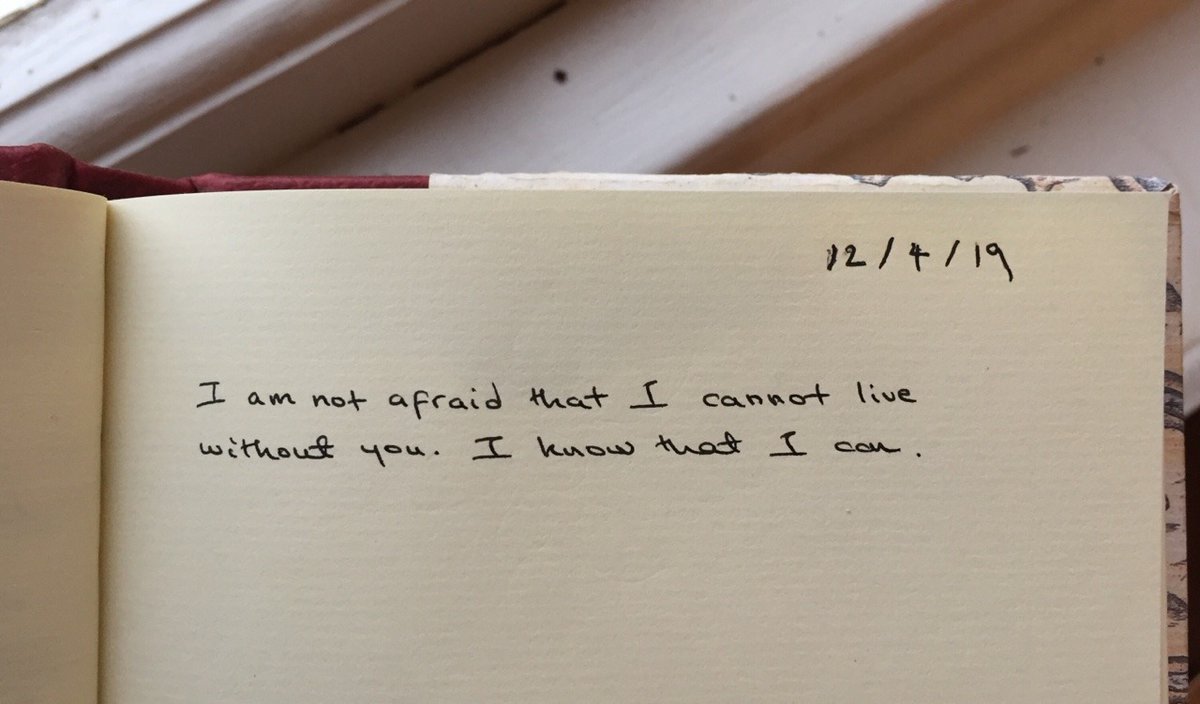 12/4/19
I am not afraid that I cannot live
without you. I know that I can.